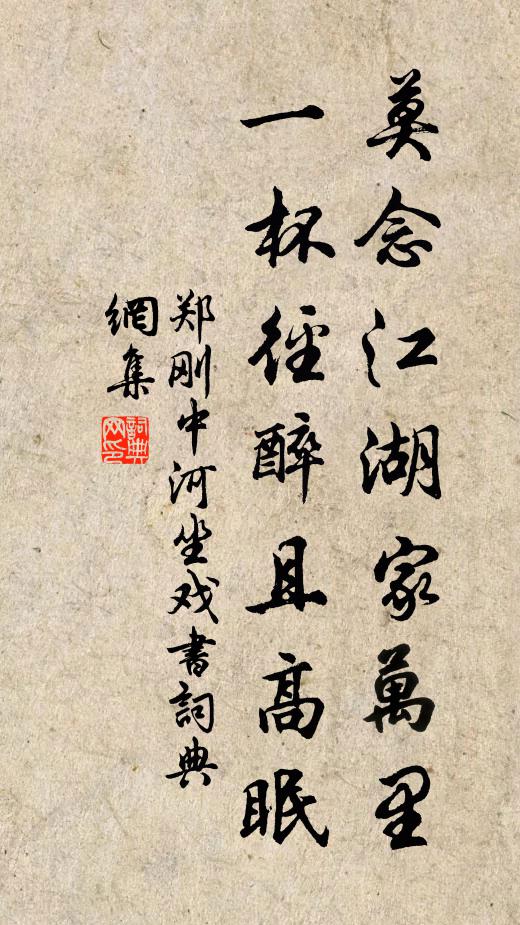 莫念江湖家萬里
一杯徑醉且高眠
郑刚中河坐戏书詞典
網集
詞典网印